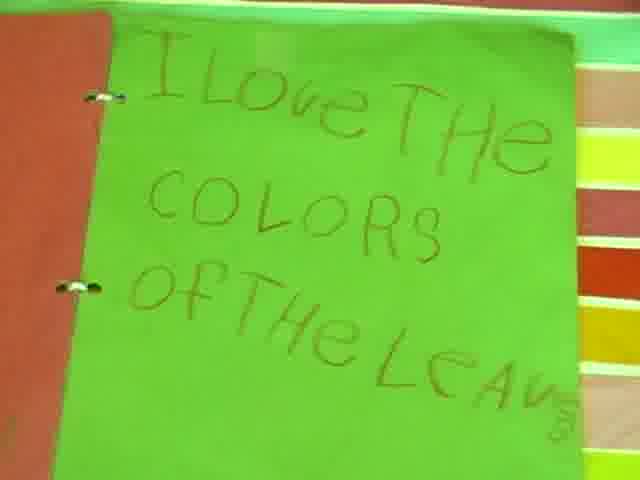 I Love THe
COLORS
OF THe LeAves